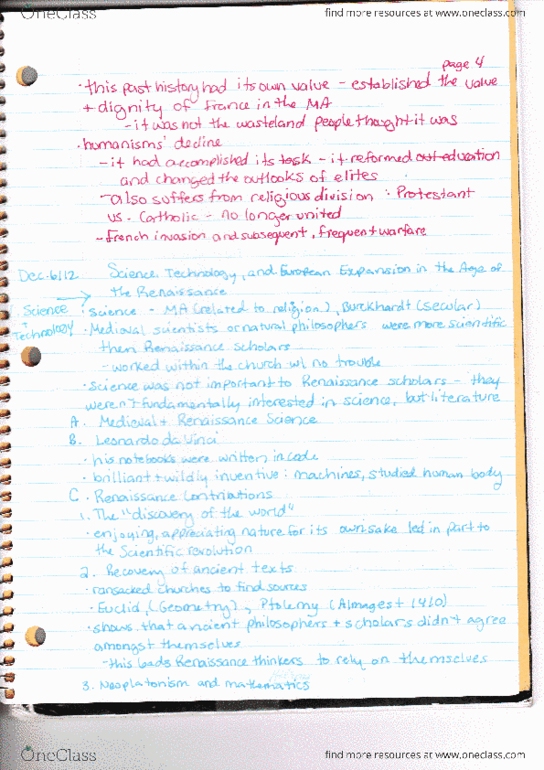 OneClass
find more resources at www.oneclass.com
page 4
· this past history had its own value - established the value
+ dignity of France in the MA
- it was not the wasteland people thought it was
· humanisms' decline
- it had accomplished its task - it reformed out education
and changed the outlooks of elites
- also suffers from religious division : Protestant
vs. Catholic - no longer united
- French invasion and subsequent, frequent warfare
Dec. 6/12 Science, Technology, and European Expansion in the Age of
the Renaissance
Science : science - MA (related to religion), Burckhardt (secular)
Technology · Medieval scientists or natural philosophers were more scientific
then Renaissance scholars
- worked within the church w/ no trouble
· science was not important to Renaissance scholars - they
weren't fundamentally interested in science, but literature
A. Medieval + Renaissance Science
B. Leonardo da Vinci
· his notebooks were written in code
· brilliant + wildly inventive : machines, studied human body
C. Renaissance Contributions
1. The "discovery of the world"
· enjoying, appreciating nature for its own sake led in part to
the Scientific revolution
2. Recovery of ancient texts
· ransacked churches to find sources
· Euclid, (Geometry), Ptolemy (Almagest 1410)
· shows that ancient philosophers + scholars didn't agree
amongst themselves
- this leads Renaissance thinkers to rely on themselves
3. Neoplatonism and mathematics
OneClass
find more resources at www.oneclass.com